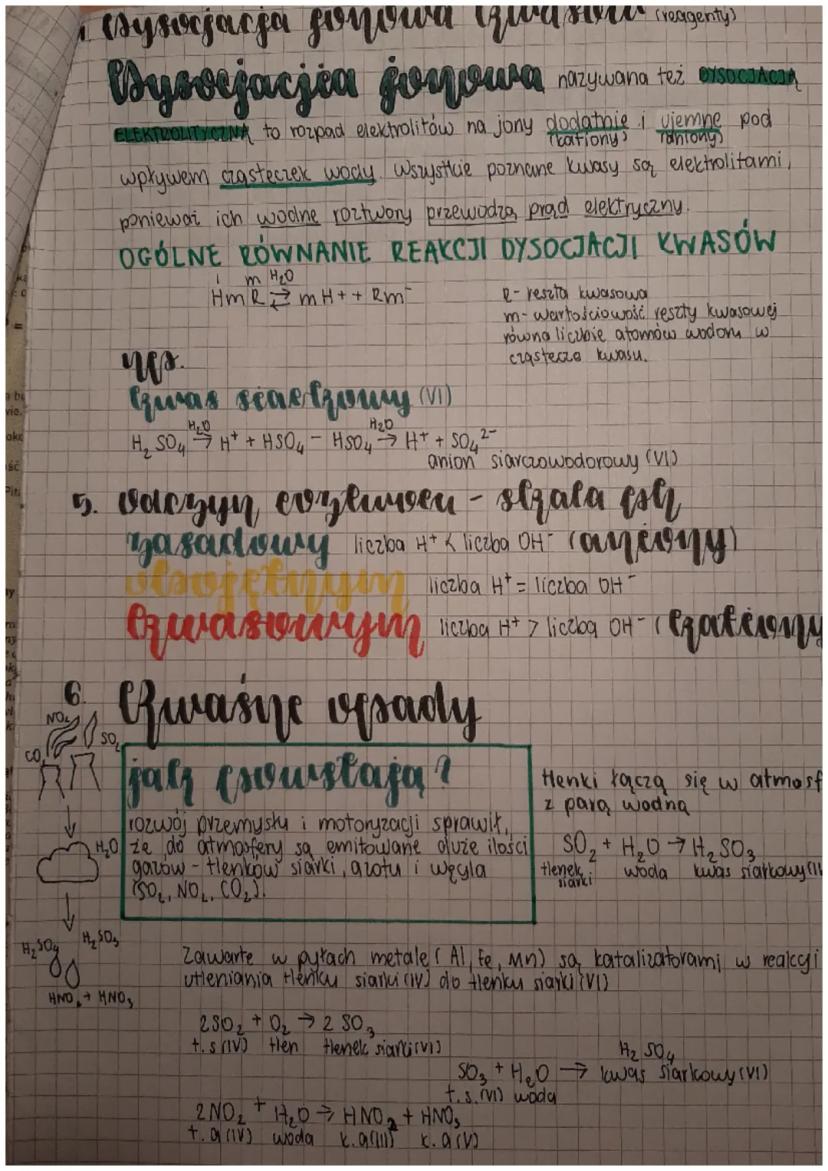 Dysocjacja jonowa kwasów (reagenty)
Dysocjacjia jonowa nazywana też DYSOCJACJĄ
ELEKTROLITYCZNĄ to rozpad elektrolitów na jony dodatnie i ujemne pod
(kationy) (aniony)
wpływem cząsteczek wody. Wszystkie poznane kwasy są elektrolitami,
ponieważ ich wodne roztwory przewodzą prąd elektryczny.
OGÓLNE RÓWNANIE REAKCJI DYSOCJACJI KWASÓW
I m H₂O
HmR ⇄ mH+ + Rm⁻
R- reszta kwasowa
m- wartościowość reszty kwasowej
równa liczbie atomów wodoru w
cząstecze kwasu.
np.
kwas siarkowy (VI)
H₂SO₄ →(H₂O) H⁺ + HSO₄ - HSO₄ →(H₂O) H⁺ + SO₄²⁻
anion siarczowodorowy (VI)
5. odczyn - skala pH
zasadowy liczba H⁺ < liczba OH⁻ (aniony)
obojętnym liczba H⁺ = liczba OH⁻
kwasowym liczba H⁺ > liczba OH⁻ (kationy
6. Kwaśne opady
NO₂
SO₂
CO₂
H₂O
H₂SO₄ H₂SO₃
HNO₂ + HNO₃
jak powstają?
rozwój przemysłu i motoryzacji sprawił,
że do atmosfery są emitowane duże ilości
gazów - tlenków siarki, azotu i węgla
(SO₂, NO₂, CO₂).
tlenki łączą się w atmosf
z parą wodną
SO₂ + H₂O → H₂SO₃
tlenek siarki woda kwas siarkowy(I
Zawarte w pyłach metale (Al, Fe, Mn) są katalizatorami w reakcji
utleniania tlenku siarki (IV) do tlenku siarki (VI)
2SO₂ + O₂ → 2 SO₃
t.s(IV) tlen tlenek siarki(VI)
H₂SO₄
SO₃ + H₂O → kwas siarkowy(VI)
t.s.(VI) woda
2NO₂ + H₂O → HNO₂ + HNO₃
t.a(IV) woda k.a(III) k.a(V)